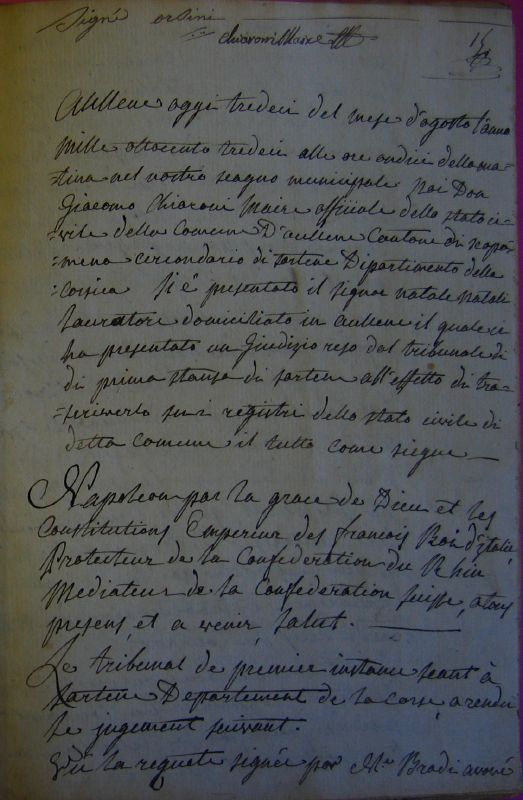 Signé orsini
Chiaroni Maire
Aullene oggi tredeci del mese d'agosto l'anno
Mille ottocento tredeci alle ore undici della ma-
=tina nel nostro seagno municipale Noi Don
Giacomo Chiaroni Maire offiziale dello stato ci-
=vile della Comune D'aullene Cantone di scopa-
=mena circondario di sartene Dipartimento della
=corsica Si è presentato il signor natale natali
lauratore domiciliato in aullene il quale ci
ha presentato un Giudizio reso dal tribunale di
di prima stanza di sartene all'effetto di tra-
=scriverlo sui registri dello stato civile di
detta Comune il tutto come siegue
Napoleon par la grace de Dieu et les
Constitutions Empereur des francois Roi d'italie
Protecteur de la Confederation du Rhin
Mediateur de la Confederation suisse, a tous
presens, et a venir, Salut.
Le tribunal de premier instance seant à
Sartene Departement de la corse, a rendu
le jugement suivant.
Vu la requete signée par Me Bradi avoué